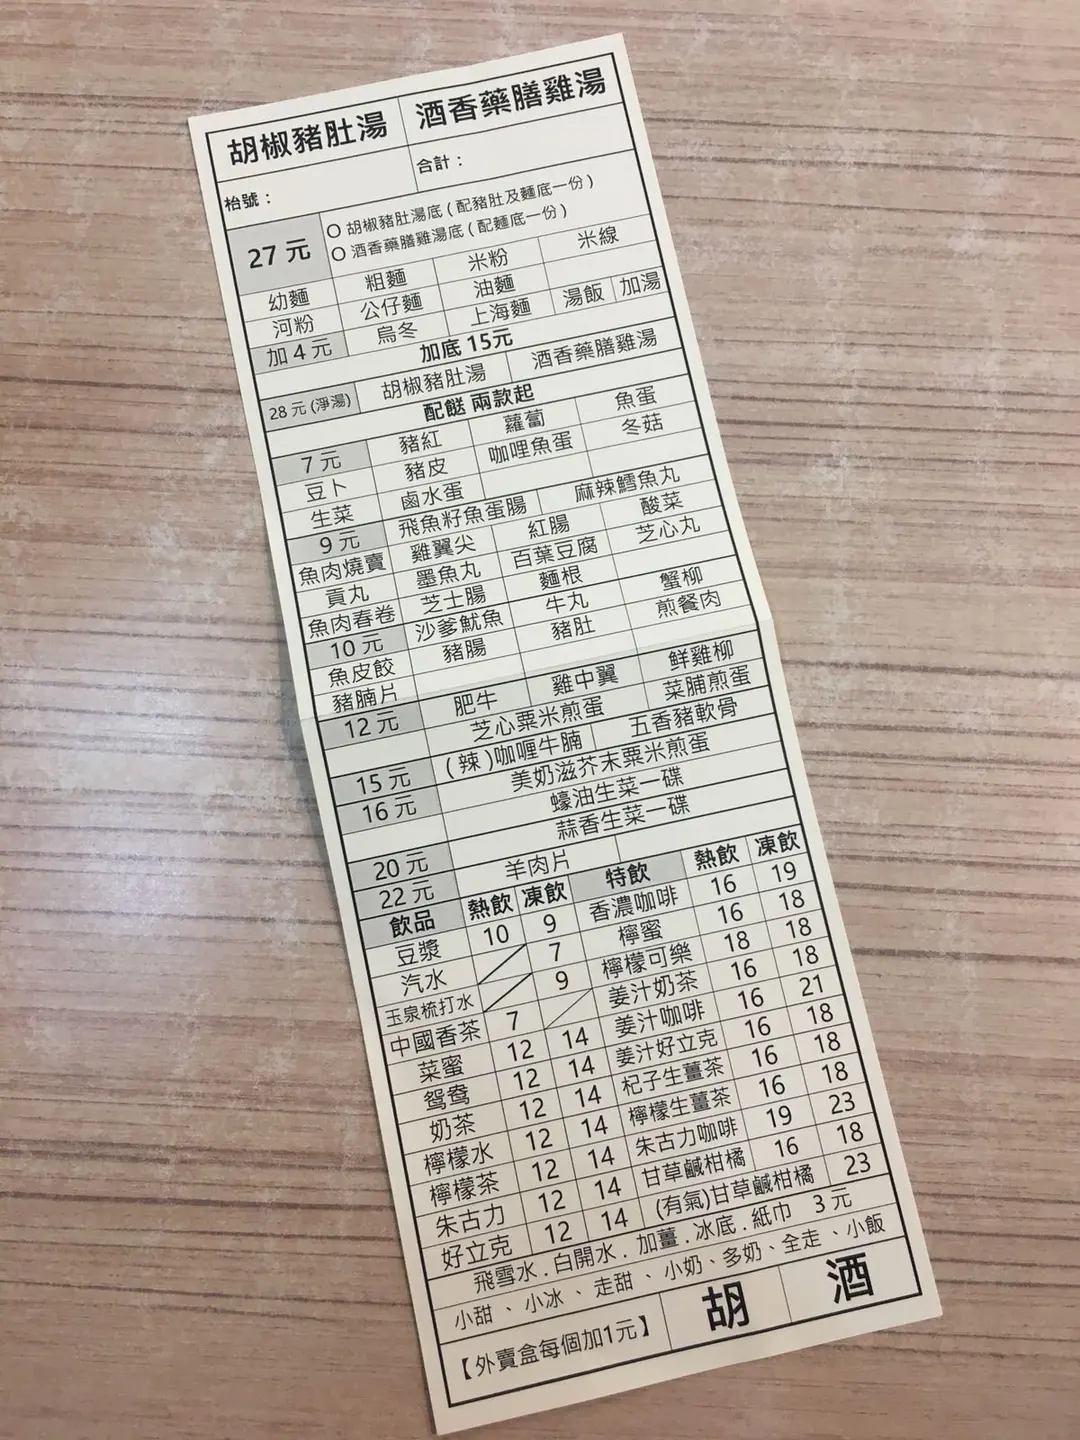 胡椒豬肚湯 酒香藥膳雞湯
枱號： 合計：
27 元 O 胡椒豬肚湯底 ( 配豬肚及麵底一份 )
O 酒香藥膳雞湯底 ( 配麵底一份 )
幼麵 粗麵 米粉 米線
河粉 公仔麵 油麵
加 4 元 烏冬 上海麵 湯飯 加湯
加底 15元
28 元 (淨湯) 胡椒豬肚湯 酒香藥膳雞湯
配餸 兩款起
7 元 豬紅 蘿蔔 魚蛋
豆卜 豬皮 咖哩魚蛋 冬菇
生菜 鹵水蛋
9 元 飛魚籽魚蛋腸 麻辣鱈魚丸
魚肉燒賣 雞翼尖 紅腸 酸菜
貢丸 墨魚丸 百葉豆腐 芝心丸
魚肉春卷 芝士腸 麵根
10 元 沙爹魷魚 牛丸 蟹柳
魚皮餃 豬腸 豬肚 煎餐肉
豬腩片
12 元 肥牛 雞中翼 鮮雞柳
芝心粟米煎蛋 菜脯煎蛋
15 元 ( 辣 )咖喱牛腩 五香豬軟骨
16 元 美奶滋芥末粟米煎蛋
蠔油生菜一碟
蒜香生菜一碟
20 元 羊肉片
22 元
飲品 熱飲 凍飲 特飲 熱飲 凍飲
豆漿 10 9 香濃咖啡 16 19
汽水 7 檸蜜 16 18
玉泉梳打水 9 檸檬可樂 18 18
中國香茶 7 姜汁奶茶 16 18
菜蜜 12 14 姜汁咖啡 16 21
鴛鴦 12 14 姜汁好立克 16 18
奶茶 12 14 杞子生薑茶 16 18
檸檬水 12 14 檸檬生薑茶 16 18
檸檬茶 12 14 朱古力咖啡 19 23
朱古力 12 14 甘草鹹柑橘 16 18
好立克 12 14 (有氣)甘草鹹柑橘 23
飛雪水 . 白開水 . 加薑 . 冰底 . 紙巾 3 元
小甜 、 小冰 、 走甜 、 小奶、多奶、全走 、小飯
【外賣盒每個加1元】 胡 酒